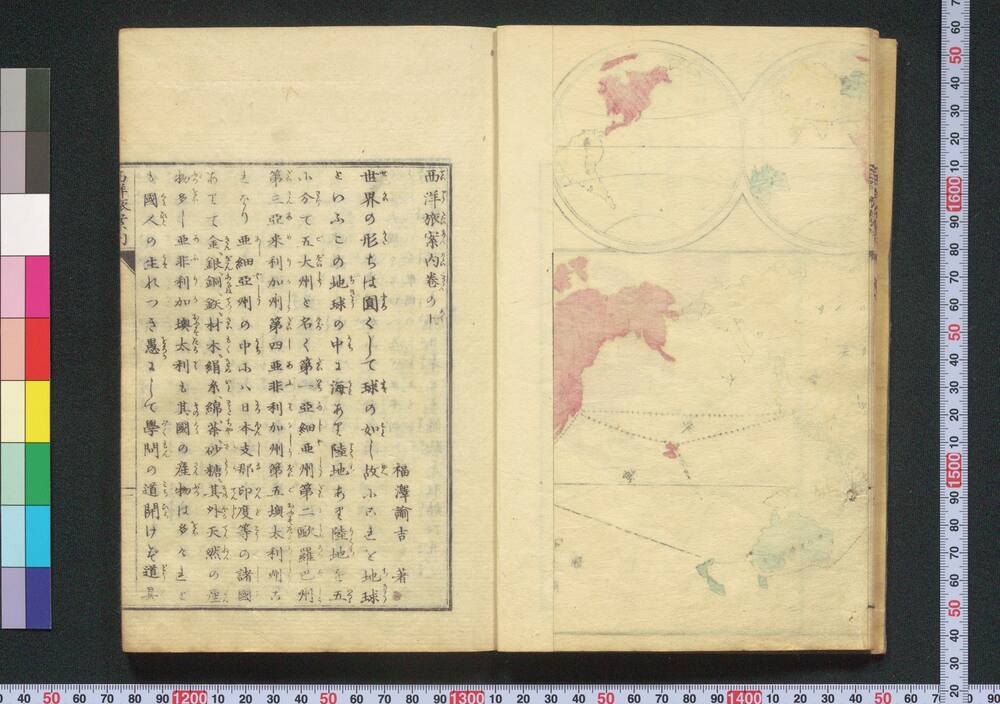 西洋旅案内巻の上
福澤諭吉 著
世界の形ちは圓くして球の如し故にこれを地球
といふこの地球の中に海あり陸地あり陸地を五
に分て五大州と名く第一亞細亞州第二歐羅巴州
第三亞米利加州第四亞非利加州第五墺太利州こ
れなり 亞細亞州の中には日本支那印度等の諸國
ありて金銀銅鉄材木絹糸綿茶砂糖其外天然の産
物多し亞非利加墺太利も其國の産物は多けれど
も國人の生れつき愚にして學問の道開けず道具
西洋旅案内